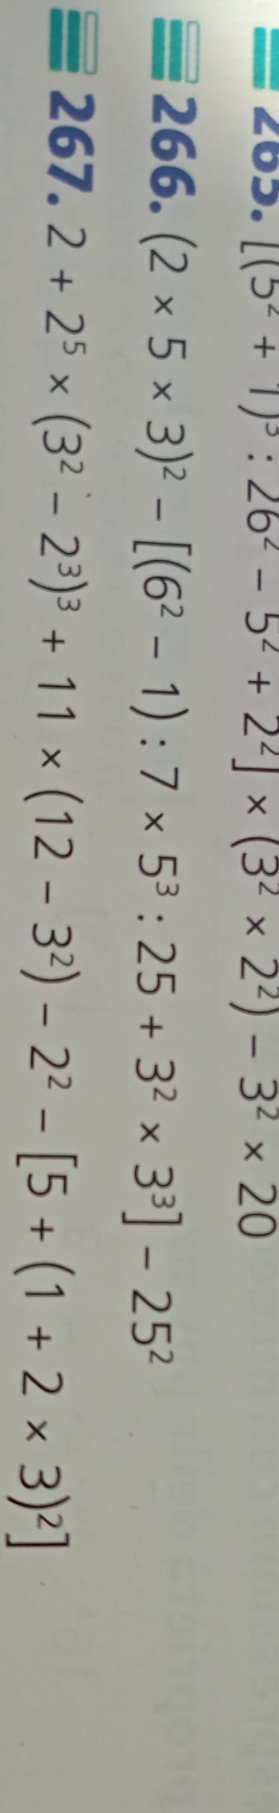 265. [(5² + 1)³ : 26² – 5² + 2²] × (3² × 2²) – 3² × 20
266. (2 × 5 × 3)² – [(6² – 1) : 7 × 5³ : 25 + 3² × 3³] – 25²
267. 2 + 2⁵ × (3² – 2³)³ + 11 × (12 – 3²) – 2² – [5 + (1 + 2 × 3)²]